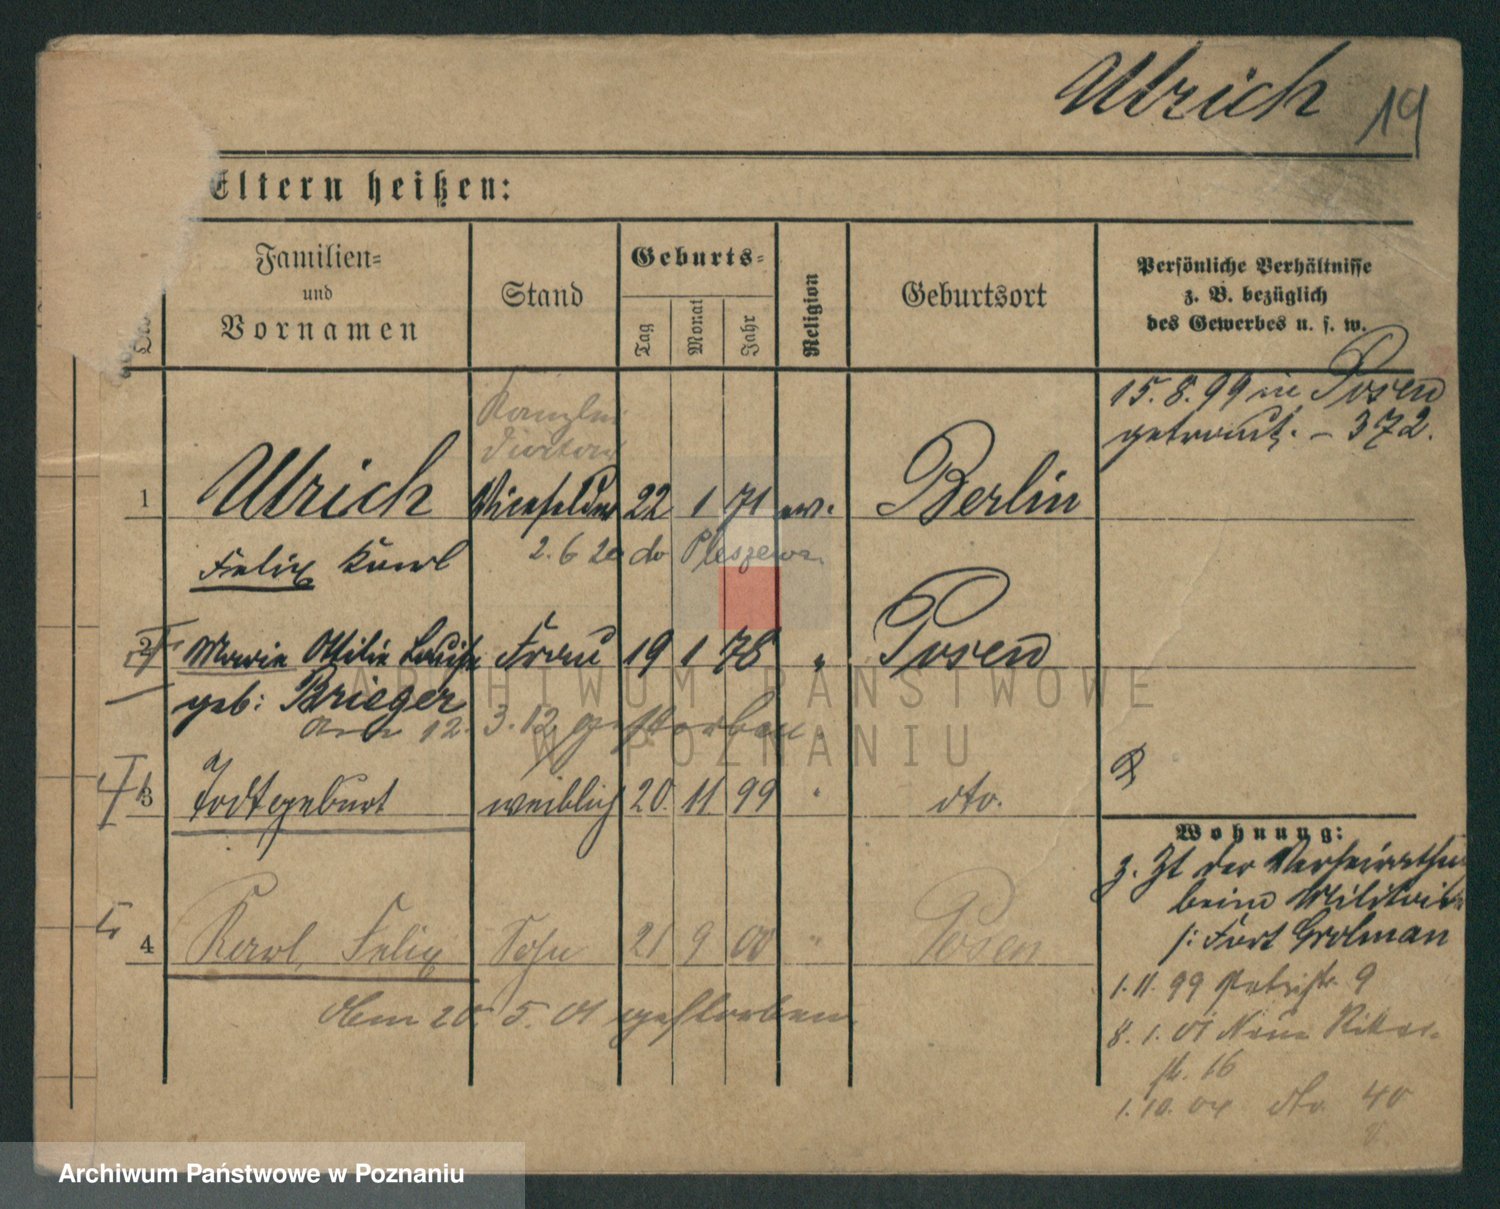 Ulrich 19
Eltern heißen:
Familien=
und
Vornamen
Stand
Geburts=
Tag
Monat
Jahr
Religion
Geburtsort
Persönliche Verhältnisse
z. B. bezüglich
des Gewerbes u. s. w.
15. 8. 99 in Posen
getraut. - 372.
1 Ulrich Vicefeldw 22 1 71 ev. Berlin
Felix Karl 2. 6 20 do Pleszewa
2 Marie Ottilie Luise Frau 19 1 78 " Posen
geb: Brieger
am 12. 3. 12 gestorben.
3 Todtgeburt weiblich 20. 11 99 " dto.
4 Karl Felix Sohn 21 9 00 " Posen
Am 20. 5. 01 gestorben.
Wohnung:
z. Zt der Verheirathg
beim Militär
/: Fort Grolman
1. 11. 99 Petristr. 9
8. 1. 01 Neue
16
1. 10. 04 dto 40
ARCHIWUM PAŃSTWOWE
W POZNANIU
Archiwum Państwowe w Poznaniu